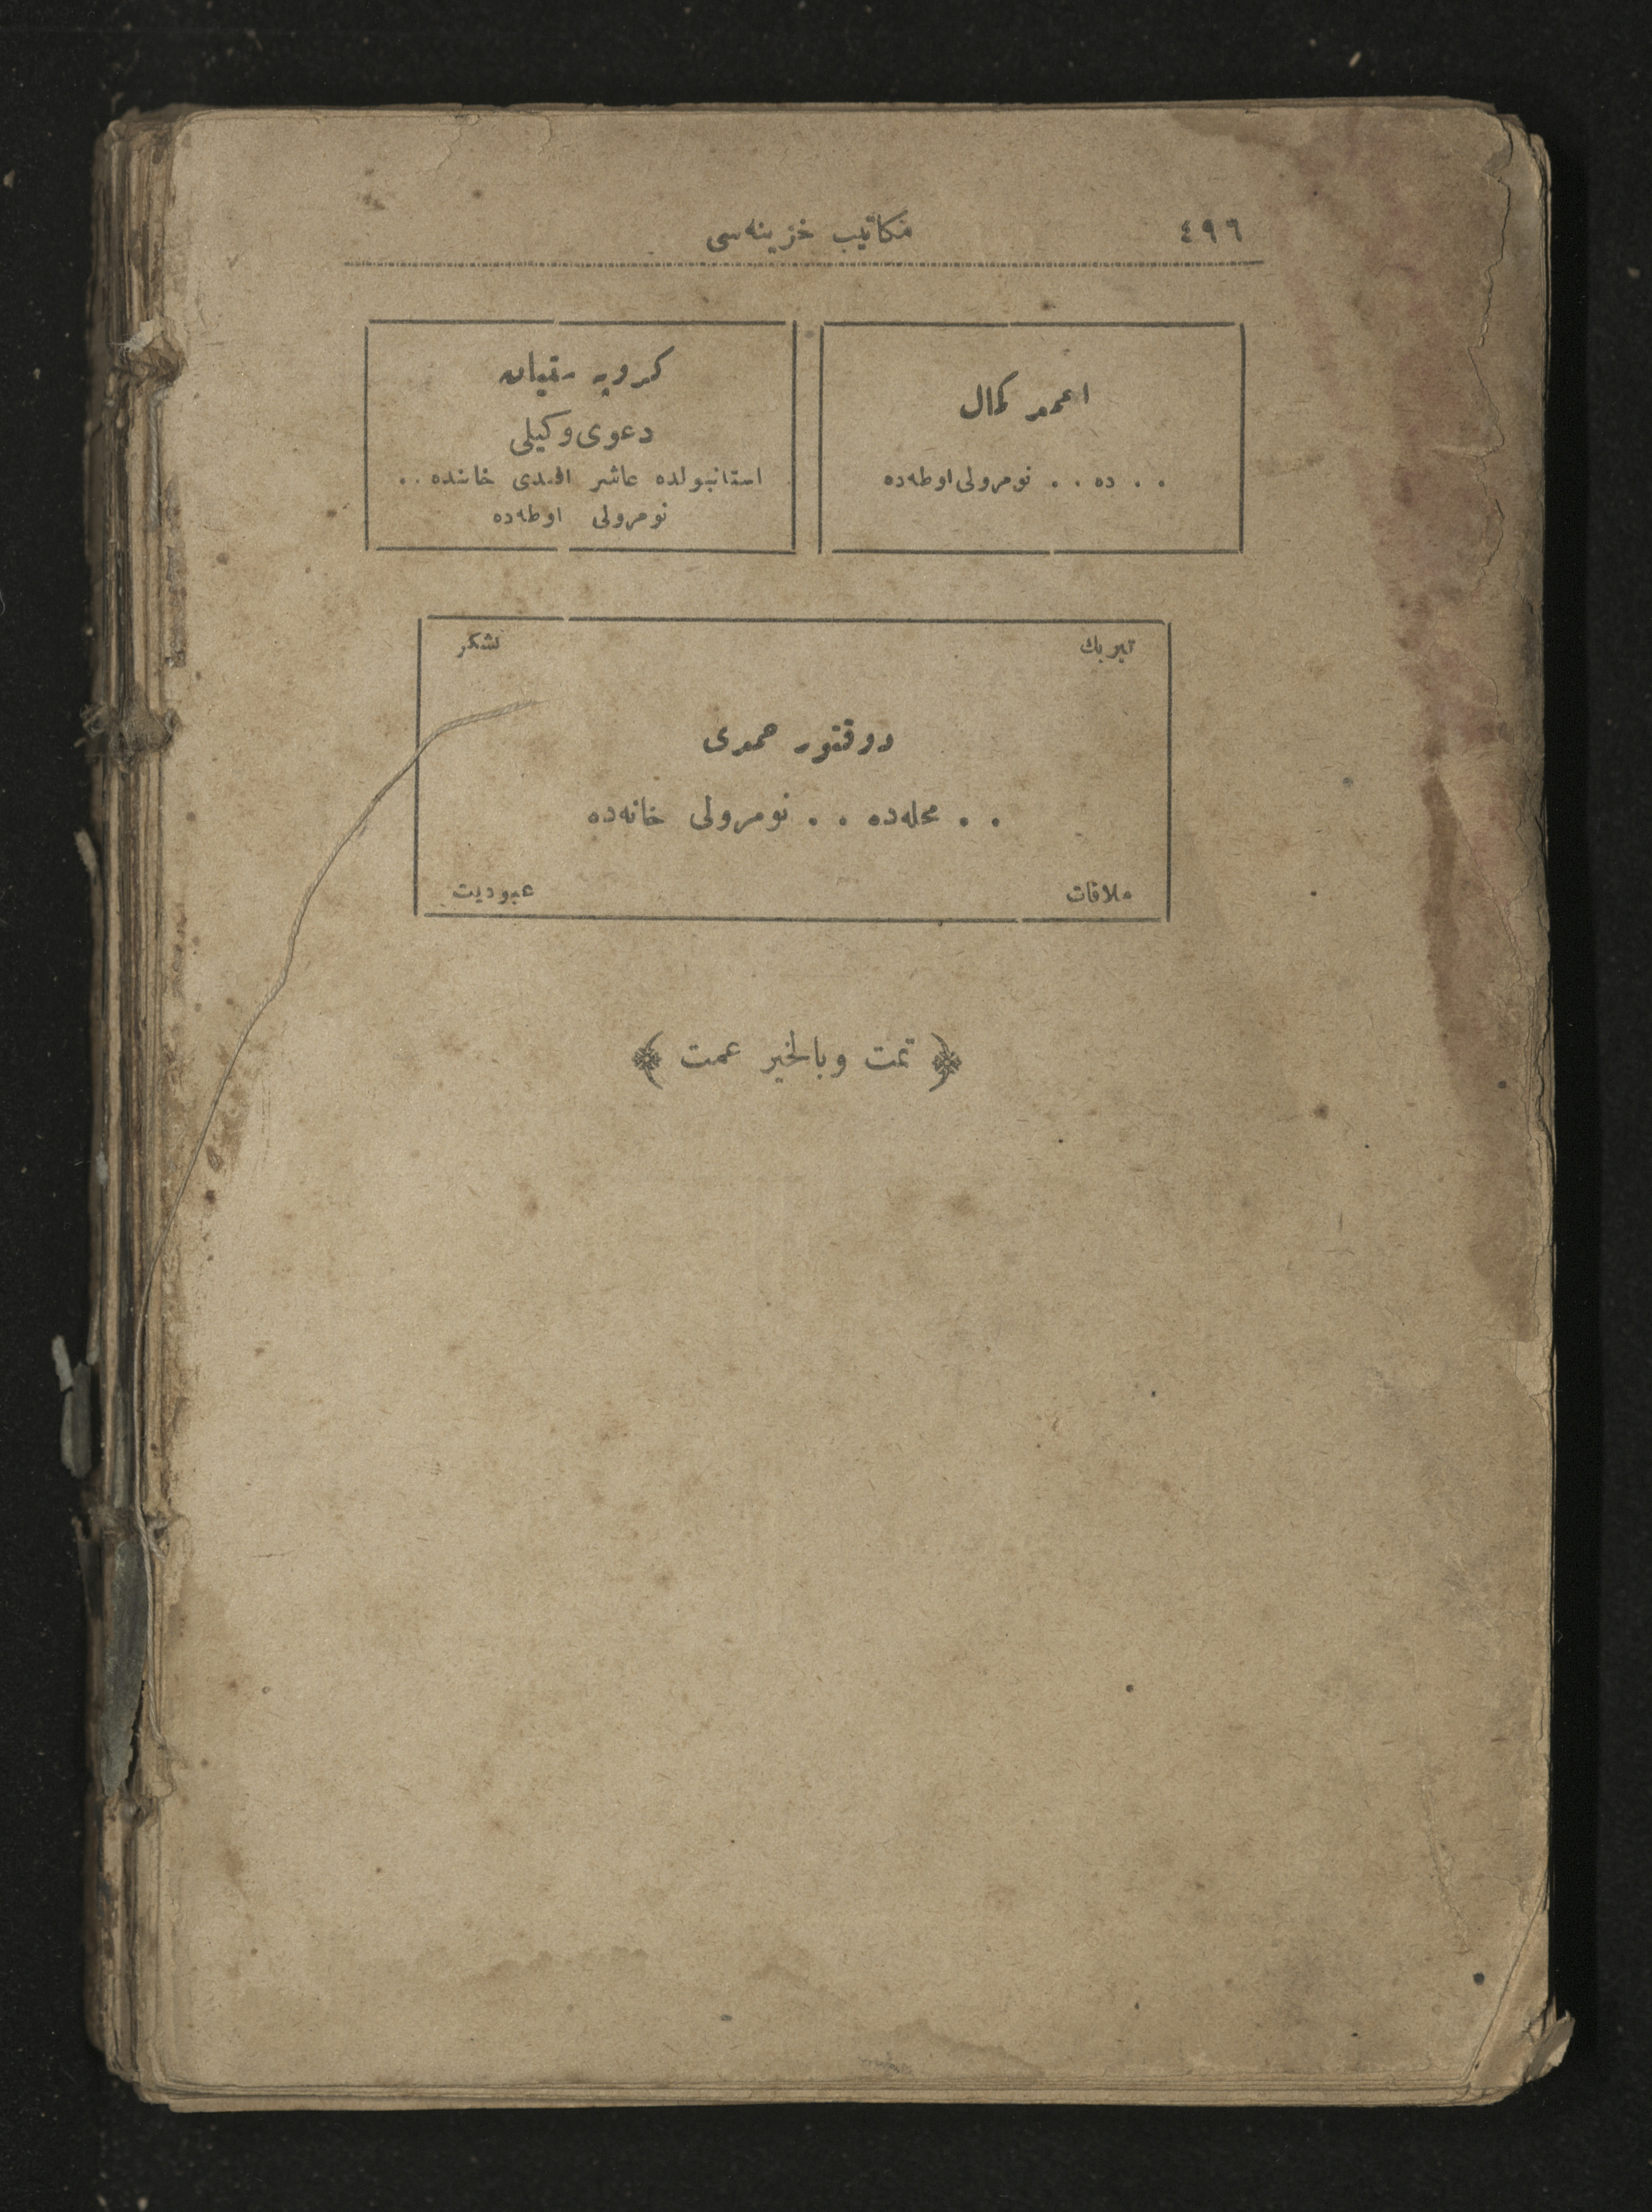 ٤٩٦
مكاتيب خزينه‌سی
احمد كمال
. . ده . . نومرولی اوطه‌ده
دعوی وكيلی
استانبولده عاشر افندی خاننده . .
نومرولی اوطه‌ده
تبريك
تشكر
دوقتور حمدی
. . محله‌ده . . نومرولی خانه‌ده
ملاقات
عبوديت
﴿ تمت وبالخير عمت ﴾